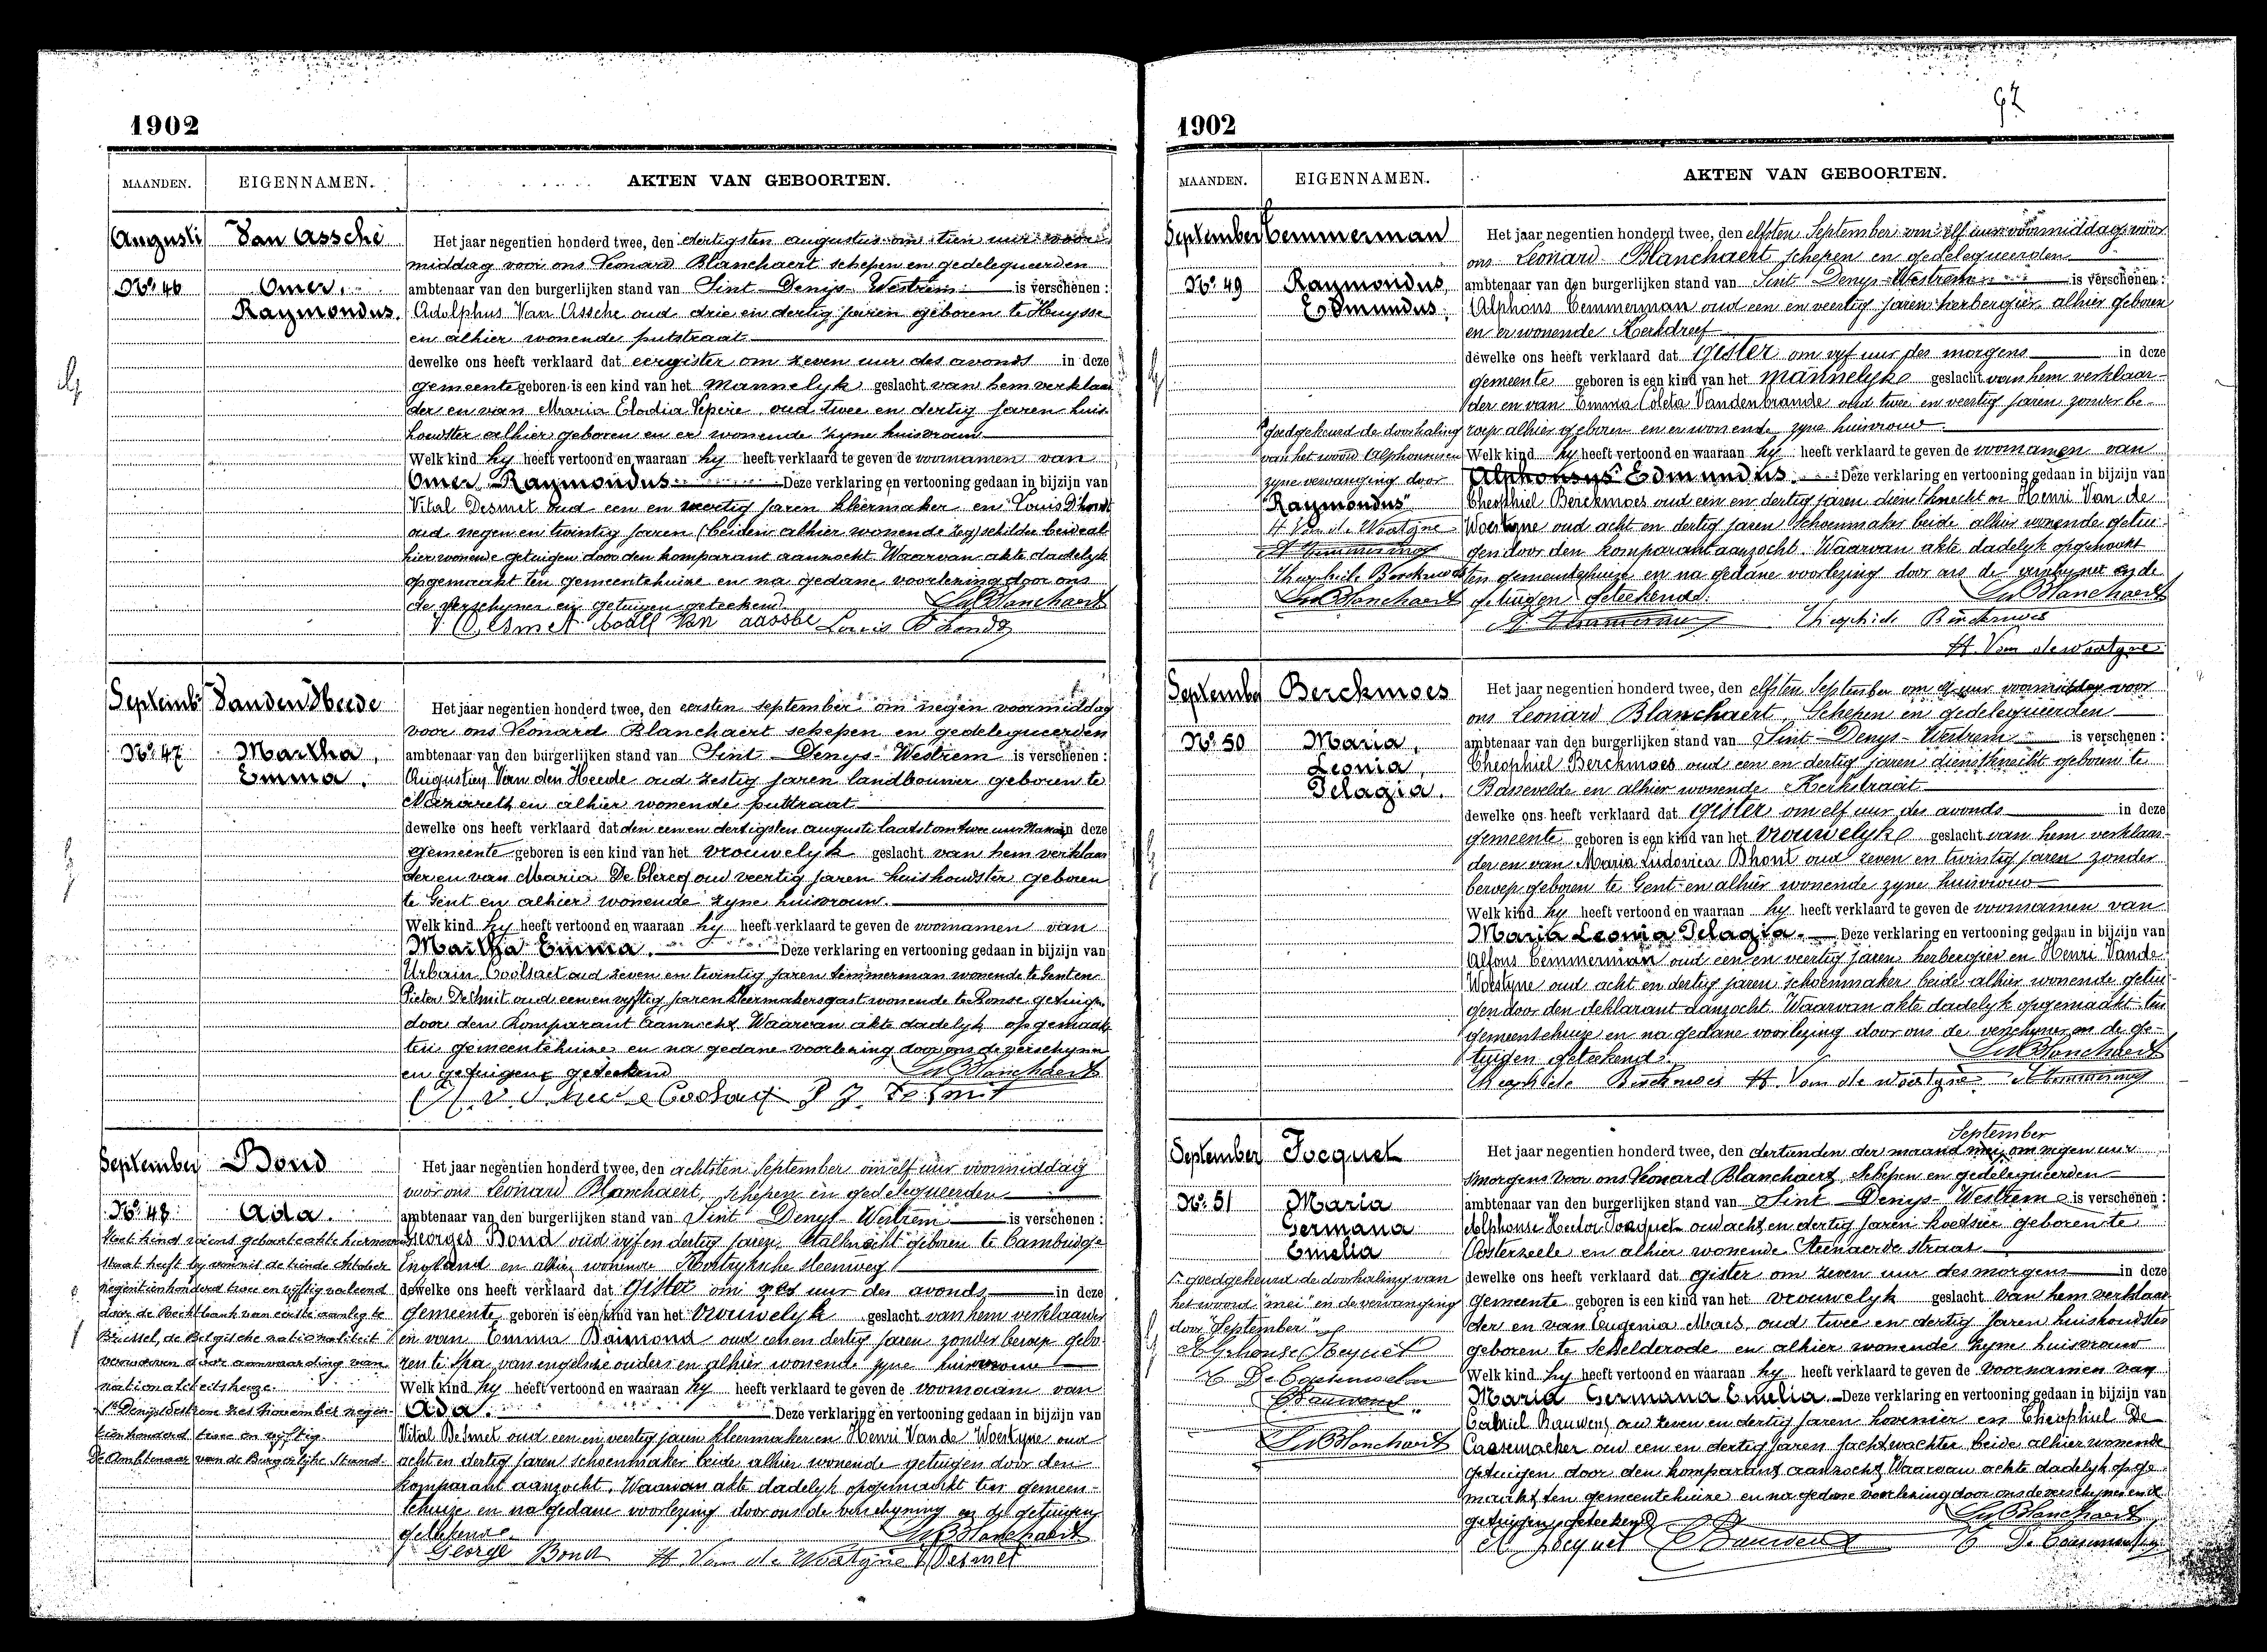 1902
MAANDEN. EIGENNAMEN. AKTEN VAN GEBOORTEN.
Augusti Van Assche
Nº 46 Omer,
Raymondus.
Het jaar negentien honderd twee, den dertigsten augustus om tien uur voor
middag voor ons Leonard Blanchaert schepen en gedelegueerden
ambtenaar van den burgerlijken stand van Sint Denys Westrem is verschenen :
Adolphus Van Assche oud drie en dertig jaren geboren te Huysse
en alhier wonende putstraat
dewelke ons heeft verklaard dat eergister om zeven uur des avonds in deze
gemeente geboren is een kind van het mannelyk geslacht van hem verklaar
der en van Maria Elodia oud twee en dertig jaren huis
houdster alhier geboren en er wonende zyne huisvrouw
Welk kind hy heeft vertoond en waaraan hy heeft verklaard te geven de voornamen van
Omer Raymondus Deze verklaring en vertooning gedaan in bijzijn van
Vital Desmet oud een en veertig jaren kleermaker en Louis D'hondt
oud negen en twintig jaren (beiden alhier wonende zeg) schilder beide al
hier wonende getuigen door den komparant aanzocht Waarvan akte dadelyk
opgemaakt ten gemeentehuize en na gedane voorlezing door ons
de verschyner en getuigen geteekend Blanchaert
V Desmet Van assche Louis D hondt
Septemb Vanden Heede
Nº 47 Martha,
Emma.
Het jaar negentien honderd twee, den eersten september om negen voormiddag
voor ons Leonard Blanchaert schepen en gedelegueerden
ambtenaar van den burgerlijken stand van Sint Denys Westrem is verschenen :
Augustien Van den Heede oud zestig jaren landbouwer geboren te
Nazareth en alhier wonende putstraat
dewelke ons heeft verklaard dat den een en dertigsten augusti laatst om twee uur in deze
gemeente geboren is een kind van het vrouwelyk geslacht van hem verklaar
der en van Maria De Clercq oud veertig jaren huishoudster geboren
te Gent en alhier wonende zyne huisvrouw
Welk kind hy heeft vertoond en waaraan hy heeft verklaard te geven de voornamen van
Martha Emma. Deze verklaring en vertooning gedaan in bijzijn van
Urbain Coolsaet oud zeven en twintig jaren timmerman wonende te Gent en
Pieter De Smit oud een en vyftig jaren kleermakersgast wonende te Ronse getuigen
door den Komparant aanzocht Waarvan akte dadelyk opgemaakt
ten gemeentehuize en na gedane voorlezing door ons de verschyner
en getuigen geteekend Blanchaert
September Bond
Nº 48 Ada.
Het kind wiens geboorteakte hiernevens
staat heeft by vonnis de tiende Oktober
negentienhonderd twee en vyftig verleend
door de Rechtbank van eerste aanleg te
Brussel, de Belgische nationaliteit
verworven door aanvaarding van
nationaliteitskeuze.
St Denys Westrem zes November negen-
tienhonderd twee en vyftig
De Ambtenaar van de Burgerlyke Stand.
Het jaar negentien honderd twee, den achtsten September om elf uur voormiddag
voor ons Leonard Blanchaert, schepen en gedelegueerden
ambtenaar van den burgerlijken stand van Sint Denys Westrem is verschenen :
Georges Bond oud vyf en dertig jaren, Stalknecht geboren te Cambridge
England en alhier wonende Kortryksche steenweg
dewelke ons heeft verklaard dat gister om zes uur des avonds in deze
gemeente geboren is een kind van het vrouwelyk geslacht van hem verklaarder
en van Emma oud een en dertig jaren zonder beroep gebo-
ren te Spa, van engelsche ouders en alhier wonende zyne huisvrouw
Welk kind hy heeft vertoond en waaraan hy heeft verklaard te geven de voornaam van
Ada. Deze verklaring en vertooning gedaan in bijzijn van
Vital Desmet oud een en veertig jaren kleermaker en Henri Vande Woestyne oud
acht en dertig jaren schoenmaker beide alhier wonende getuigen door den
komparant aanzocht, Waarvan akte dadelyk opgemaakt ten gemeen-
tehuize en na gedane voorlezing door ons de verschyning en de getuigen
geteekend. Blanchaert
George Bond H. Van de Woestyne V Desmet
92
1902
MAANDEN. EIGENNAMEN. AKTEN VAN GEBOORTEN.
September Temmerman
Nº 49 Raymondus,
Edmundus.
goedgekeurd de doorhaling
van het woord Alphonsus en
zyne vervanging door
"Raymondus"
H Van de Woestyne
Theophiele Berckmoes
Blanchaert
Het jaar negentien honderd twee, den elfsten September om elf uur voormiddag voor
ons Leonard Blanchaert schepen en gedelegueerden
ambtenaar van den burgerlijken stand van Sint Denys-Westrem is verschenen :
Alphons Temmerman oud een en veertig jaren herbergier alhier geboren
en er wonende Kerkdreef
dewelke ons heeft verklaard dat gister om vyf uur des morgens in deze
gemeente geboren is een kind van het mannelyk geslacht van hem verklaar-
der en van Emma Coleta Vandenbrande oud twee en veertig jaren zonder be-
roep alhier geboren en er wonende zyne huisvrouw
Welk kind hy heeft vertoond en waaraan hy heeft verklaard te geven de voornamen van
Alphonsus Edmundus. Deze verklaring en vertooning gedaan in bijzijn van
Theophiel Berckmoes oud een en dertig jaren dienstknecht en Henri Van de
Woestyne oud acht en dertig jaren schoenmaker beide alhier wonende getui-
gen door den komparant aanzocht Waarvan akte dadelyk opgemaakt
ten gemeentehuize en na gedane voorlezing door ons de verschyner en de
getuigen geteekend. Blanchaert
Theophiele Berckmoes
H. Van de Woestyne
September Berckmoes
Nº 50 Maria,
Leonia,
Pelagia.
Het jaar negentien honderd twee, den elfsten September om elf uur voormiddag voor
ons Leonard Blanchaert, Schepen en gedelegueerden
ambtenaar van den burgerlijken stand van Sint Denys-Westrem is verschenen :
Theophiel Berckmoes oud een en dertig jaren dienstknecht geboren te
Bassevelde en alhier wonende Kerkstraat
dewelke ons heeft verklaard dat gister om elf uur des avonds in deze
gemeente geboren is een kind van het vrouwelyk geslacht van hem verklaar-
der en van Maria Ludovica Dhont oud zeven en twintig jaren zonder
beroep geboren te Gent en alhier wonende zyne huisvrouw
Welk kind hy heeft vertoond en waaraan hy heeft verklaard te geven de voornamen van
Maria Leonia Pelagia. Deze verklaring en vertooning gedaan in bijzijn van
Alfons Temmerman oud een en veertig jaren herbergier en Henri Vande
Woestyne oud acht en dertig jaren schoenmaker beide alhier wonende getui-
gen door den deklarant aanzocht. Waarvan akte dadelyk opgemaakt ten
gemeentehuize en na gedane voorlezing door ons de verschyner en de ge-
tuigen geteekend. Blanchaert
Theophiele Berckmoes H. Van de Woestyne
September Jocquet
Nº 51 Maria
Germana
Emelia
goedgekeurd de doorhaling van
het woord "mei" en de vervanging
door "September"
Alphonse Jocquet
Bauwens
Blanchaert
September
Het jaar negentien honderd twee, den dertienden der maand mei, om negen uur
smorgens voor ons Leonard Blanchaert, Schepen en gedelegueerden
ambtenaar van den burgerlijken stand van Sint Denys Westrem is verschenen :
Alphonse Hector Jocquet oud acht en dertig jaren koetsier geboren te
Oosterzeele en alhier wonende Steenaerde straat
dewelke ons heeft verklaard dat gister om zeven uur des morgens in deze
gemeente geboren is een kind van het vrouwelyk geslacht van hem verklaar
der en van Eugenia Maes oud twee en dertig jaren huishoudster
geboren te Schelderode en alhier wonende zyne huisvrouw
Welk kind hy heeft vertoond en waaraan hy heeft verklaard te geven de voornamen van
Maria Germana Emelia. Deze verklaring en vertooning gedaan in bijzijn van
Gabriel Bauwens oud zeven en dertig jaren hovenier en Theophiel De
Caesemacker oud een en dertig jaren jachtwachter beide alhier wonende
getuigen door den komparant aanzocht Waarvan akte dadelyk opge-
maakt ten gemeentehuize en na gedane voorlezing door ons de verschyner en de
getuigen geteekend Blanchaert
A Jocquet Bauwens